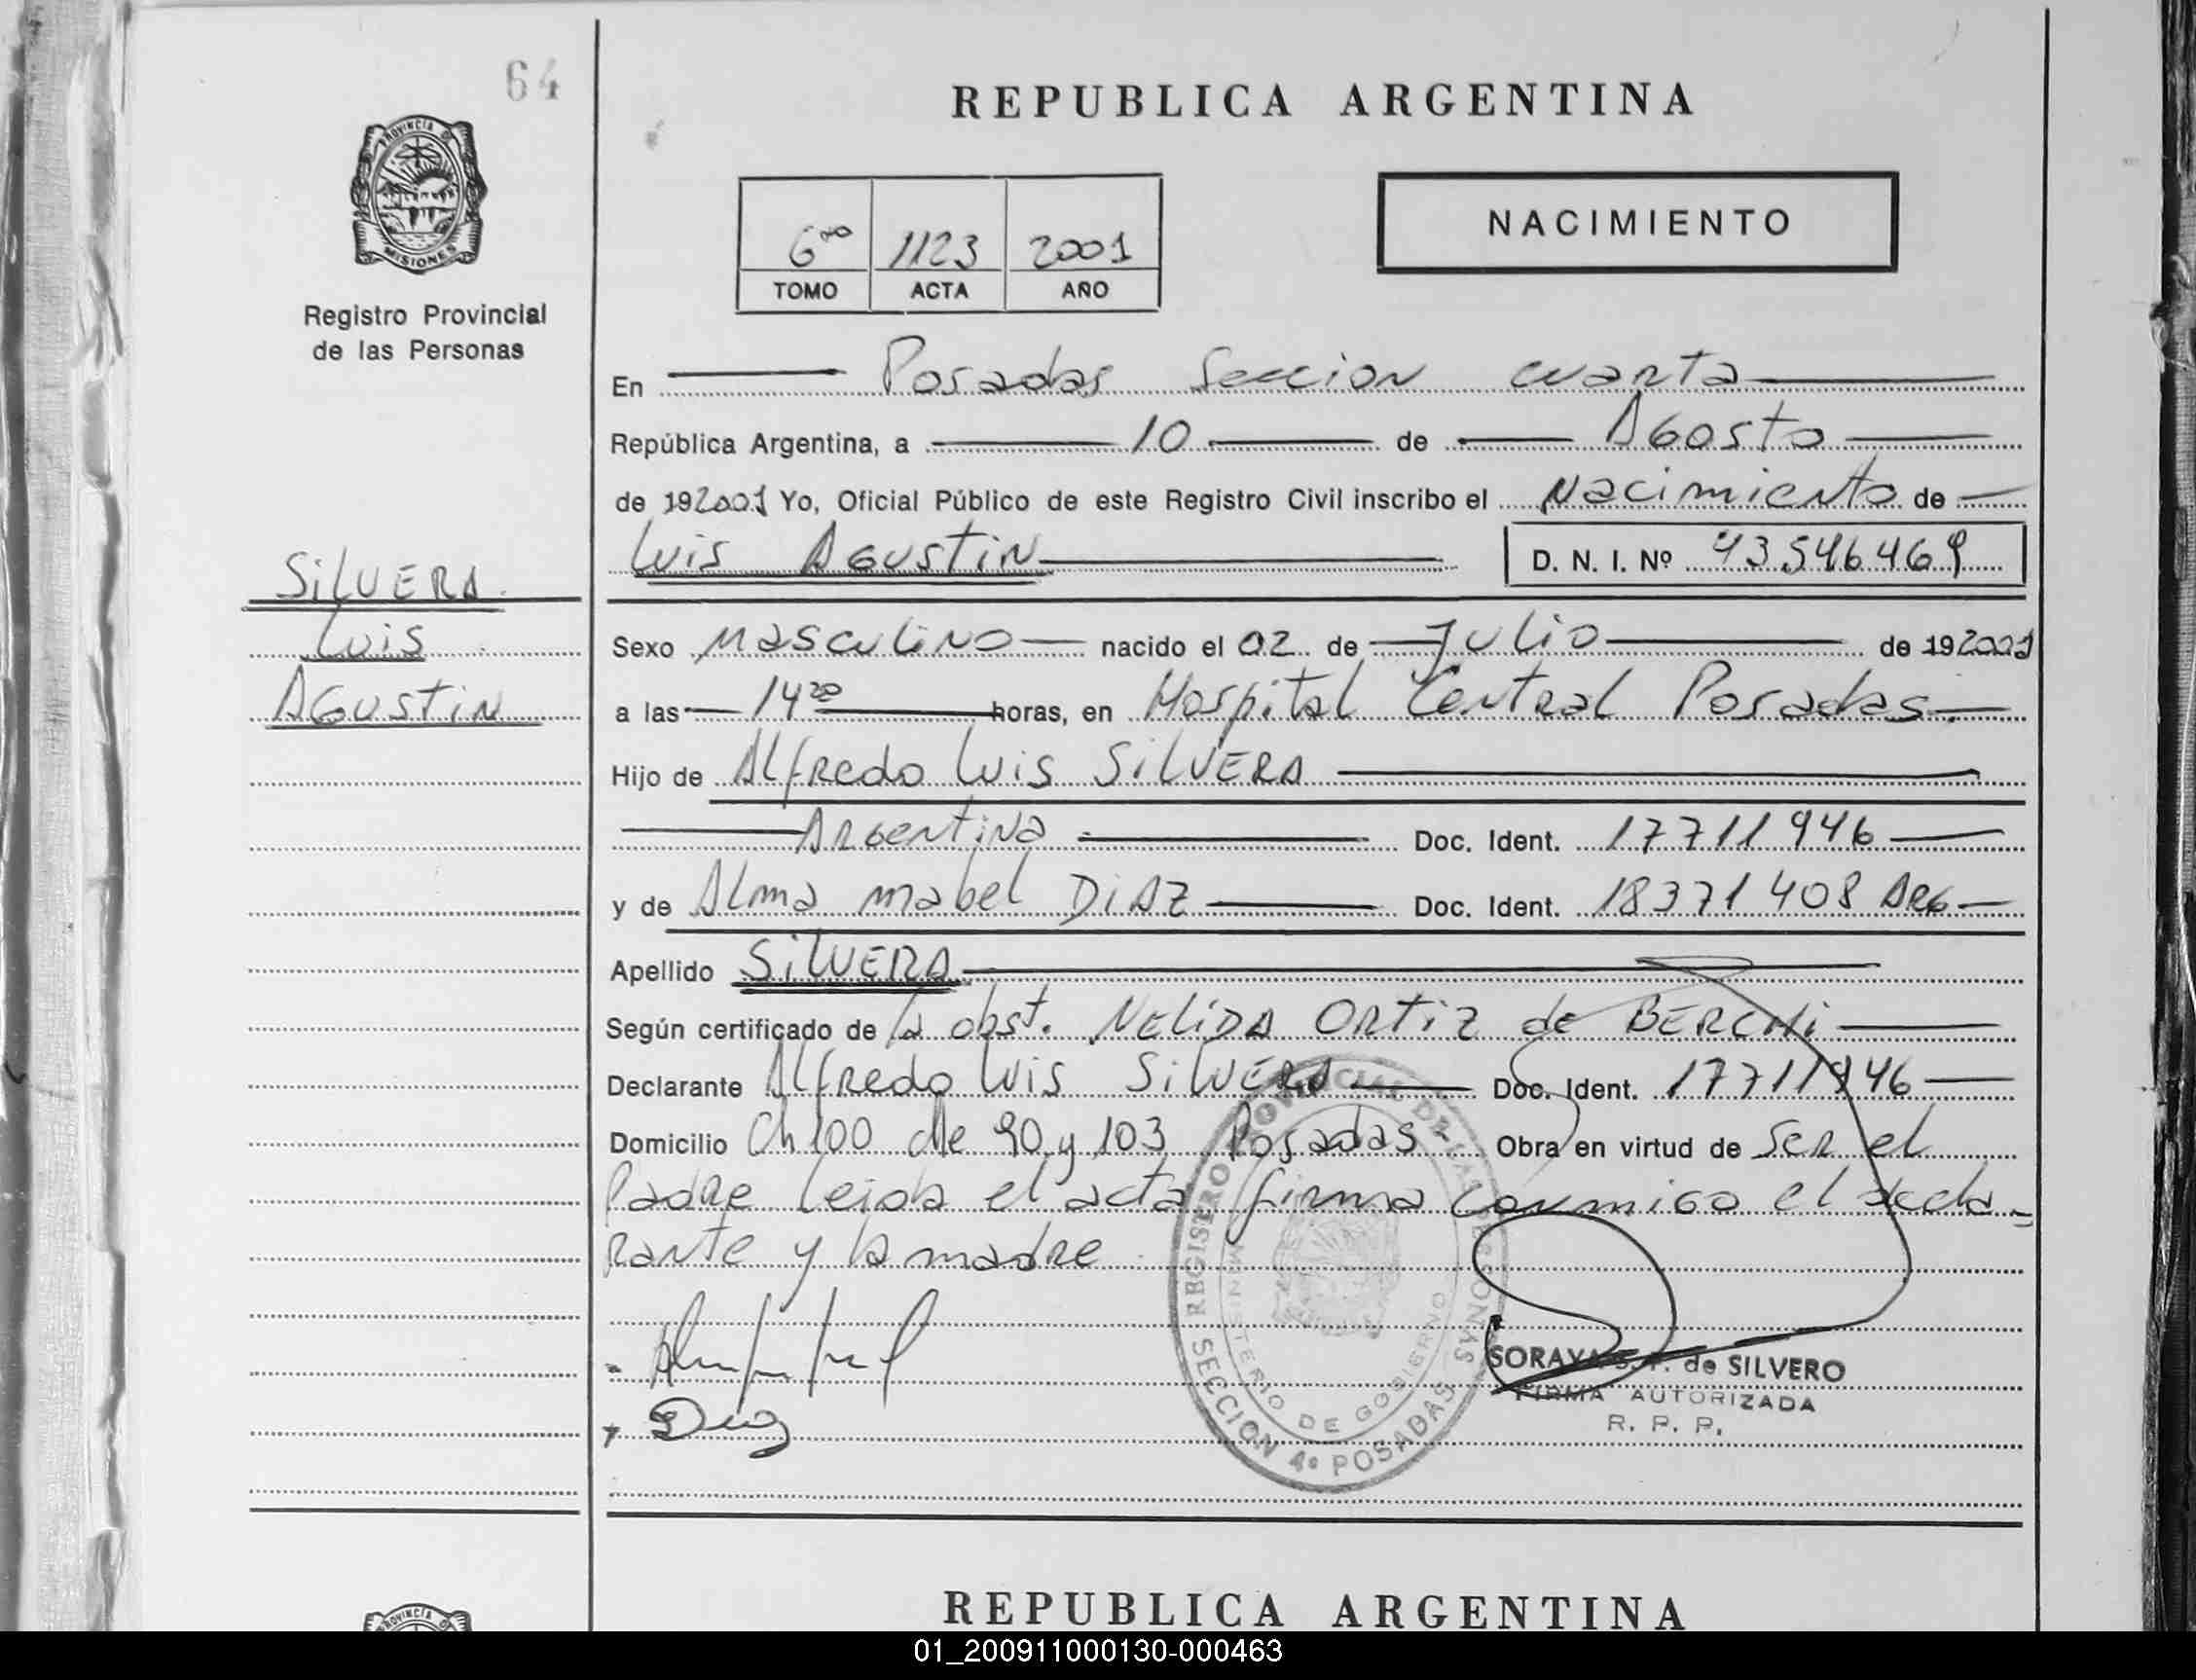 64
PROVINCIA D
MISIONES
Registro Provincial
de las Personas
SILVERA
Luis
AGUSTIN
REPUBLICA ARGENTINA
6to 1123 2001
TOMO ACTA AÑO
NACIMIENTO
En Posadas Seccion cuarta
República Argentina, a 10 de Agosto
de 192001 Yo, Oficial Público de este Registro Civil inscribo el Nacimiento de
Luis Agustin D. N. I. Nº 43546469
Sexo Masculino nacido el 02 de Julio de 192001
a las 14 20 horas, en Hospital Central Posadas.
Hijo de Alfredo Luis SILVERA
Argentina Doc. Ident. 17711946
y de Alma mabel DIAZ Doc. Ident. 18371408 ARG
Apellido SILVERA
Según certificado de la obst. NELIDA ORTIZ de
Declarante Alfredo Luis SILVERA Doc. Ident. 17711946
Domicilio Ch 100 c/le 90 y 103 Posadas Obra en virtud de Ser el
Padre leida el acta firma conmigo el decla-
rante y la madre
REGISTRO PROVINCIAL DE LAS PERSONAS
MINISTERIO DE GOBIERNO
SECCION 4º POSADAS
SORAYA de SILVERO
FIRMA AUTORIZADA
R. P. P.
Diaz
REPUBLICA ARGENTINA
PROVINCIA
01_200911000130-000463